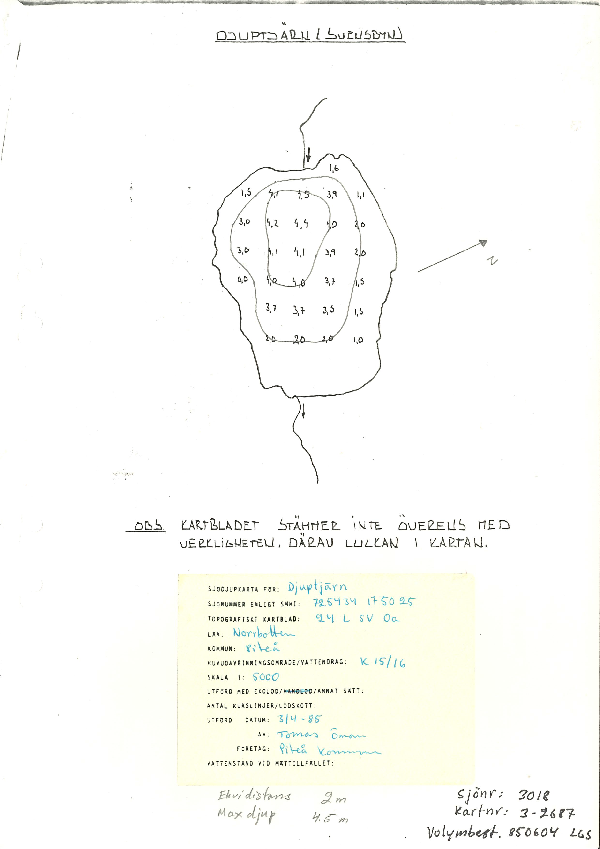 DJUPTJÄRN (SVENSBYN)
1,6
1,5 4,1 4,5 3,9 1,1
3,0 4,2 4,4 4,0 2,0
3,0 4,1 4,1 3,9 2,0
0,0 4,0 4,0 3,7 1,5
N
3,7 3,7 3,5 1,5
2,0 2,0 2,0 1,0
OBS KARTBLADET STÄMMER INTE ÖVERENS MED
VERKLIGHETEN. DÄRAV LUCKAN I KARTAN.
SJÖDJUPKARTA FÖR: Djuptjärn
SJÖNUMMER ENLIGT SMHI: 725434 175025
TOPOGRAFISKT KARTBLAD: 24 L SV 0a
LÄN: Norrbotten
KOMMUN: Piteå
HUVUDAVRINNINGSOMRÅDE/VATTENDRAG: K 15/16
SKALA 1: 5000
UTFÖRD MED EKOLOD/HANDLOD/ANNAT SÄTT:
ANTAL KLASLINJER/LODSKOTT
UTFÖRD DATUM: 3/4-85
AV: Tomas Öman
FÖRETAG: Piteå Kommun
VATTENSTÅND VID MÄTTILLFÄLLET:
Ekvidistans 2 m
Max djup 4.5 m
Sjönr: 3018
Kartnr: 3-2687
Volymbest. 850604 LGS